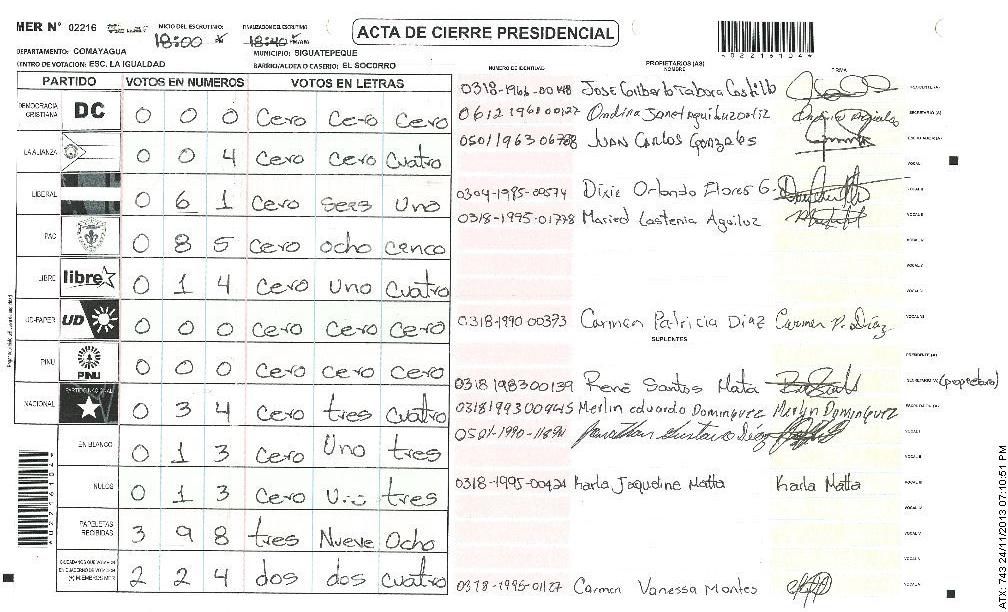 MER N° 02216 INICIO DEL ESCRUTINIO: 18:00 18:40 ACTA DE CIERRE PRESIDENCIAL
02216104
DEPARTAMENTO: COMAYAGUA MUNICIPIO: SIGUATEPEQUE
CENTRO DE VOTACION: ESC. LA IGUALDAD BARRIO/ALDEA O CASERIO: EL SOCORRO
NUMERO DE IDENTIDAD PROPIETARIOS (AS) NOMBRE FIRMA
PARTIDO VOTOS EN NUMEROS VOTOS EN LETRAS
DEMOCRACIA CRISTIANA DC 0 0 0 Cero Cero Cero
LA ALIANZA 0 0 4 Cero Cero Cuatro
LIBERAL 0 6 1 Cero Seis Uno
PAC 0 8 5 Cero Ocho Cenco
LIBRE libre 0 1 4 Cero Uno Cuatro
UD-FAPER UD 0 0 0 Cero Cero Cero
PINU PINU 0 0 0 Cero Cero Cero
NACIONAL PARTIDO NACIONAL 0 3 4 Cero tres Cuatro
EN BLANCO 0 1 3 Cero Uno tres
NULOS 0 1 3 Cero Uno tres
PAPELETAS RECIBIDAS 3 9 8 tres Nueve Ocho
2 2 4 dos dos cuatro
0318-1966-00148 Jose Gilberto Tabora Castillo
0612 1968 00127
0501 1963 06788 JUAN CARLOS Gonzales
0304-1985-00574 Dixie Orlando Flores G.
0318-1995-01778 Lastenia Aguiluz
0318-1990-00373 Carmen Patricia Diaz Carmen P. Díaz
SUPLENTES
0318 1983 00139 René Santos Mata (propietario)
0318 1993 00945 Merlin eduardo Dominguez Merlyn Dominguez
0318-1995-00424 Karla Jaqueline Matta Karla Matta
0318-1995-01127 Carmen Vanessa Montes
ATX: 743 24/11/2013 07:10:51 PM